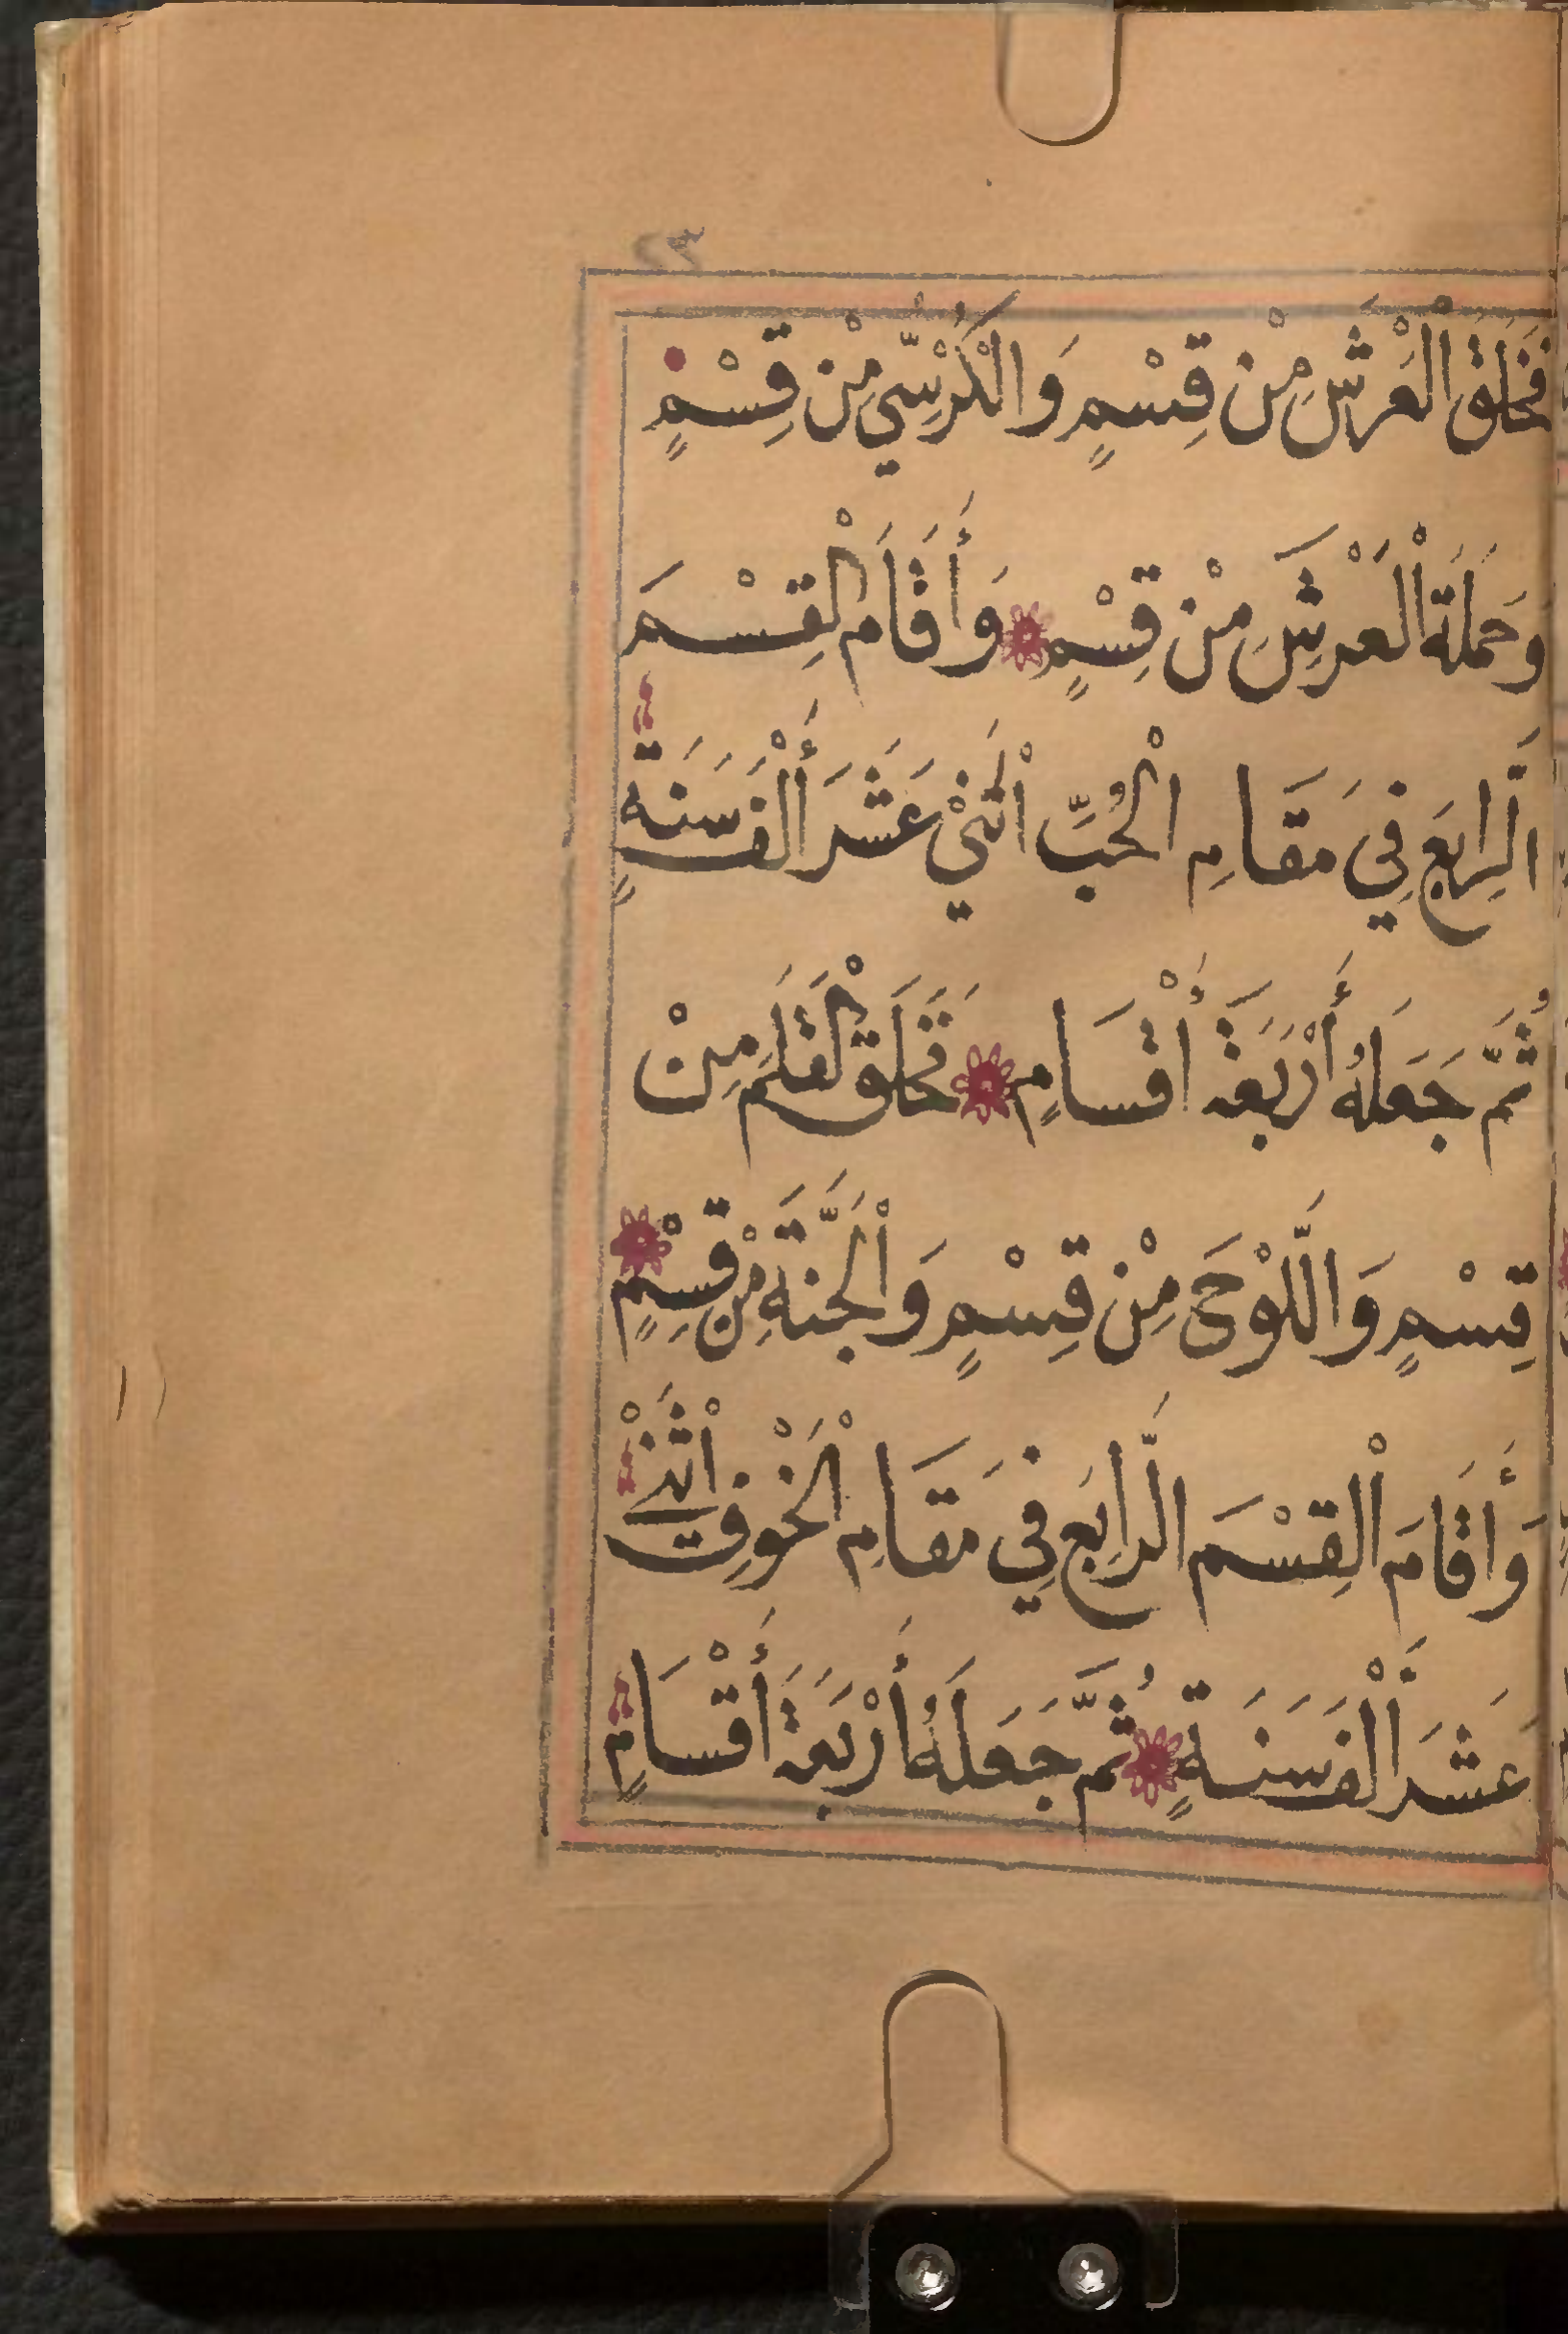 ٢٣
فَخَلَقَ الْعَرْشَ مِنْ قِسْمٍ وَالْكُرْسِيَّ مِنْ قِسْمٍ
وَحَمَلَةَ الْعَرْشِ مِنْ قِسْمٍ وَأَقَامَ الْقِسْمَ
الرَّابِعَ فِي مَقَامِ الْحُبِّ اثْنَيْ عَشَرَ أَلْفَ سَنَةٍ
ثُمَّ جَعَلَهُ أَرْبَعَةَ أَقْسَامٍ فَخَلَقَ الْقَلَمَ مِنْ
قِسْمٍ وَاللَّوْحَ مِنْ قِسْمٍ وَالْجَنَّةَ مِنْ قِسْمٍ
وَأَقَامَ الْقِسْمَ الرَّابِعَ فِي مَقَامِ الْخَوْفِ اثْنَيْ
عَشَرَ أَلْفَ سَنَةٍ ثُمَّ جَعَلَهُ أَرْبَعَةَ أَقْسَامٍ